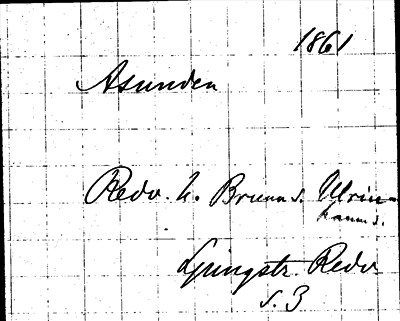 1861
Asunden
Redv. h. Brunns. Ulrice-
hamns.
Ljungstr. Redv
s. 3